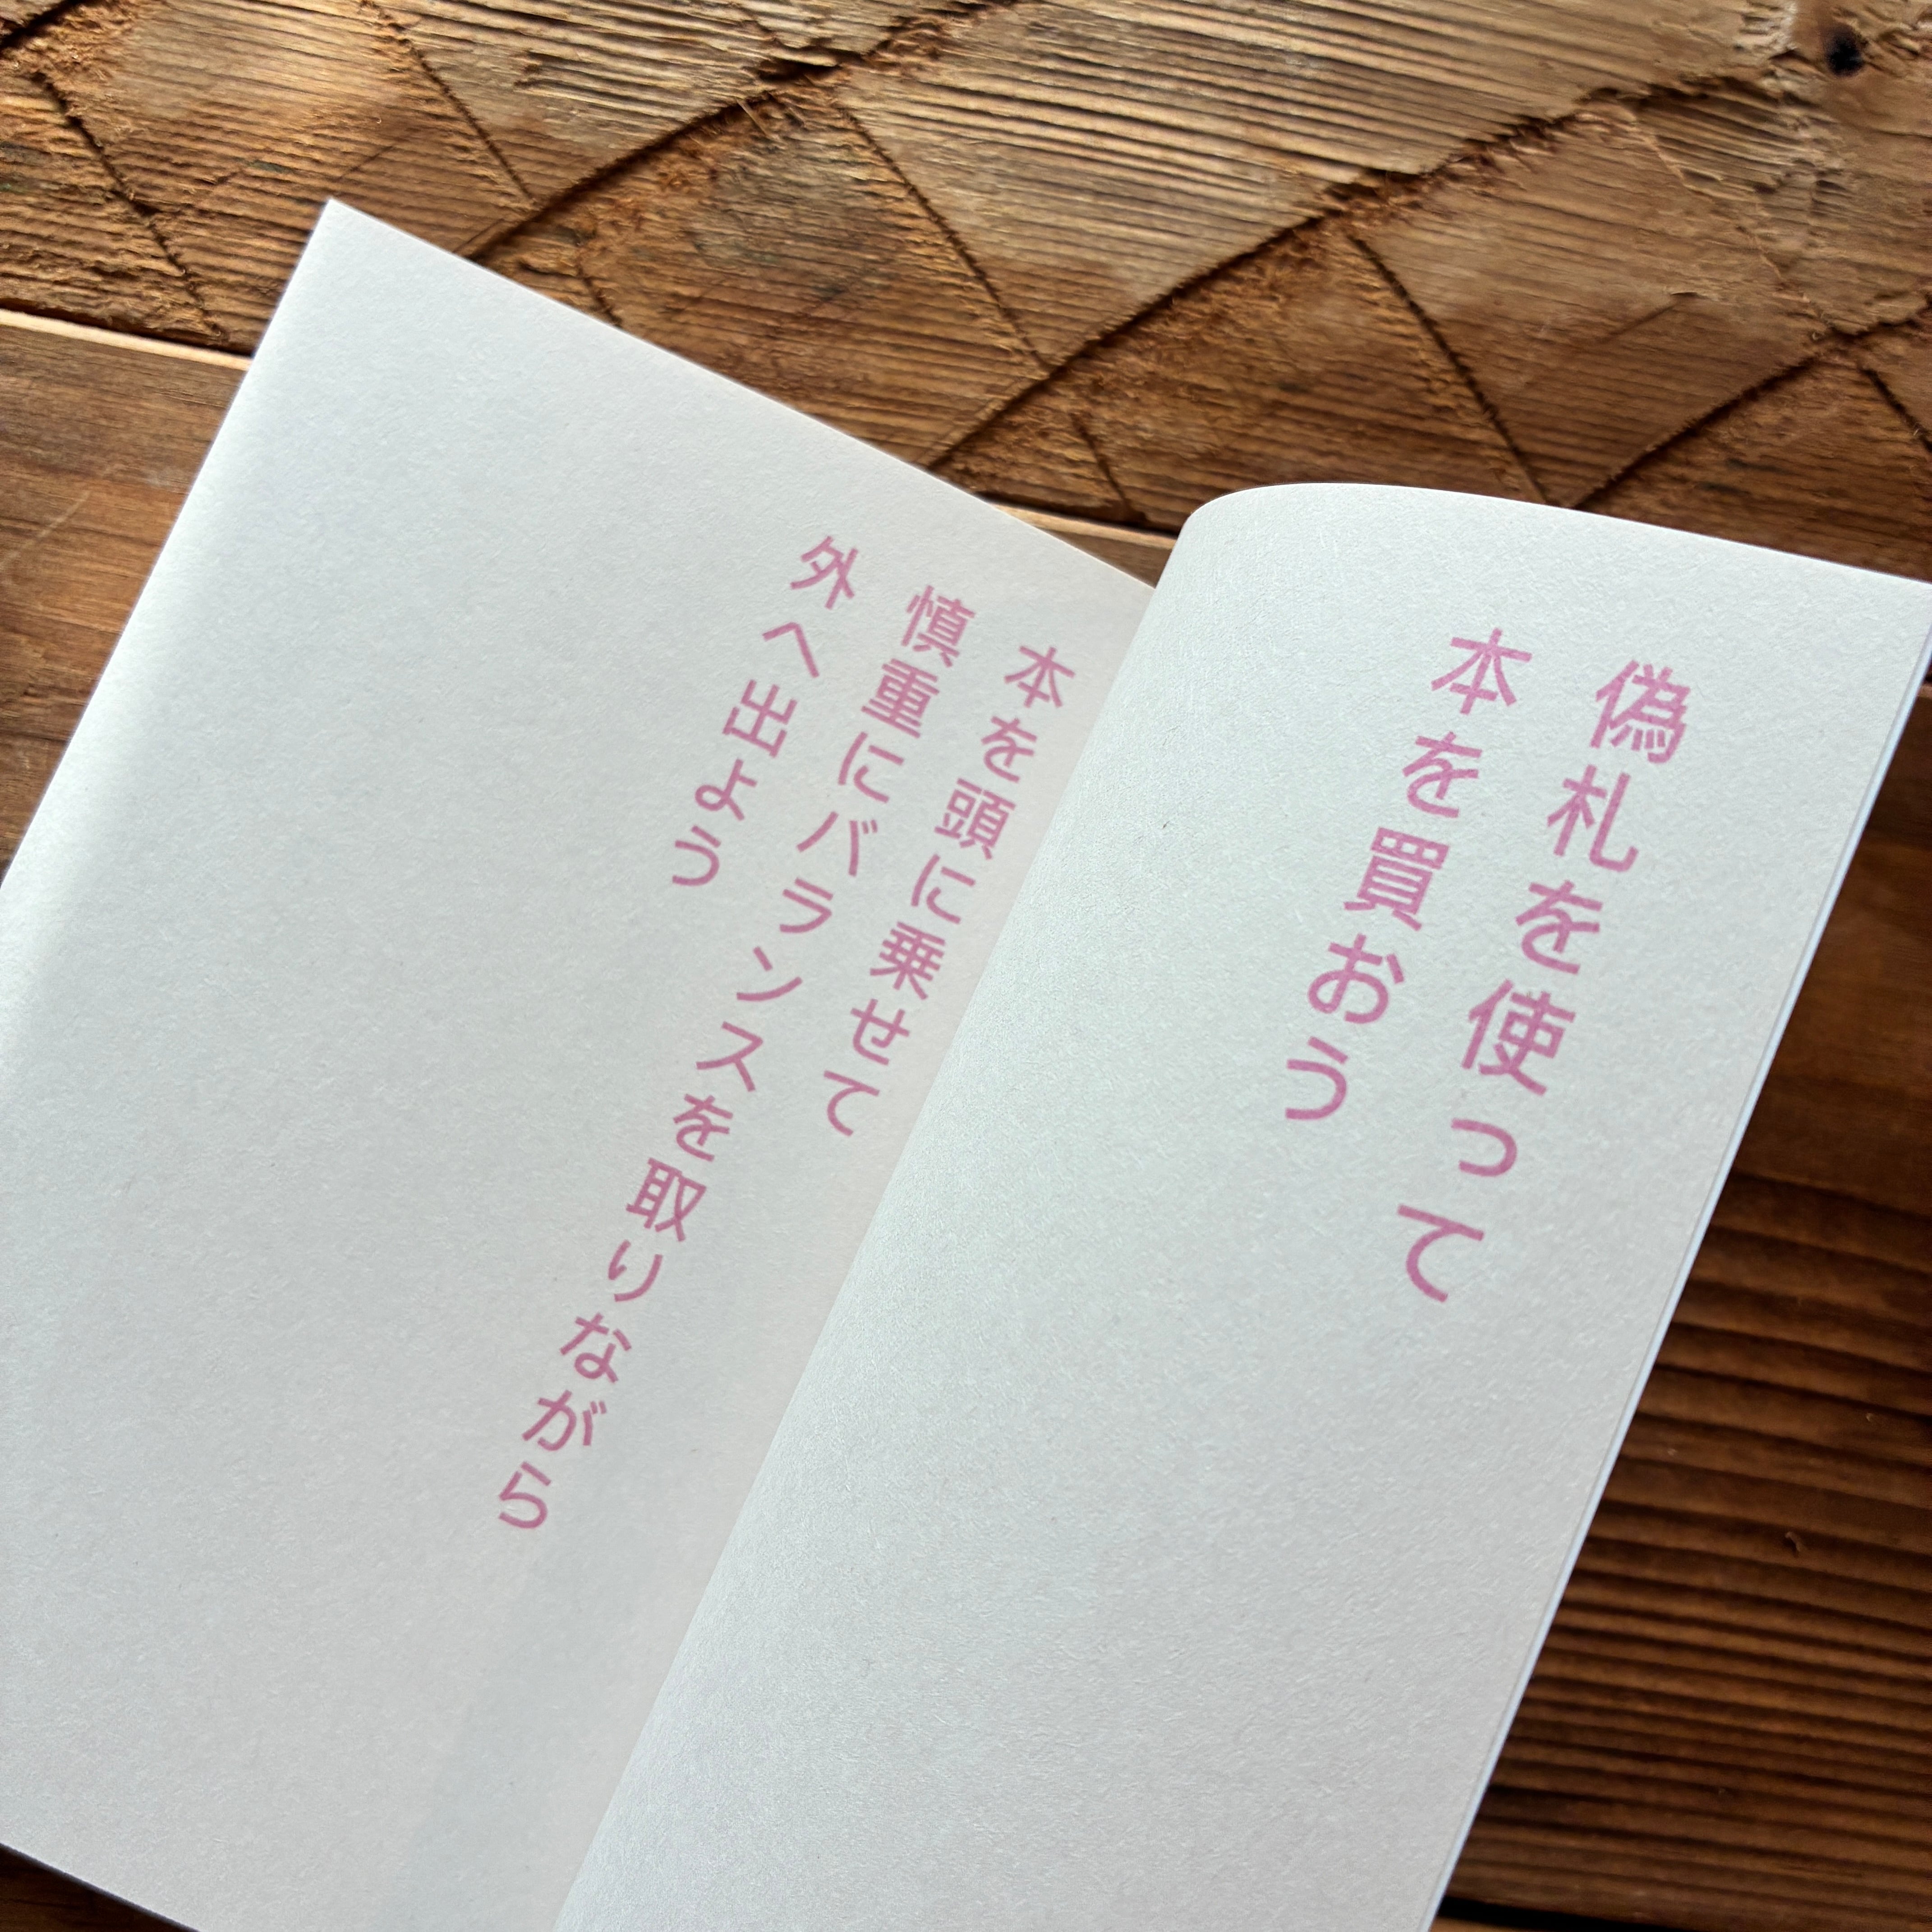 偽札を使って
本を買おう
本を頭に乗せて
慎重にバランスを取りながら
外へ出よう